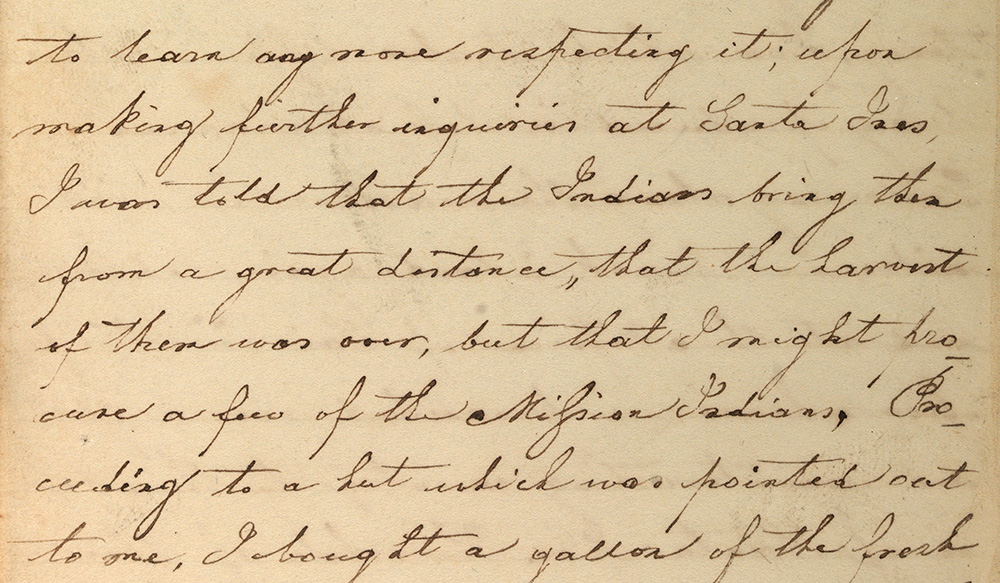 to learn any more respecting it; upon
making further inquiries at Santa Ines,
I was told that the Indians bring them
from a great distance, that the harvest
of them was over, but that I might pro-
cure a few of the Mission Indians. Pro-
ceeding to a hut which was pointed out
to me, I bought a gallon of the fresh